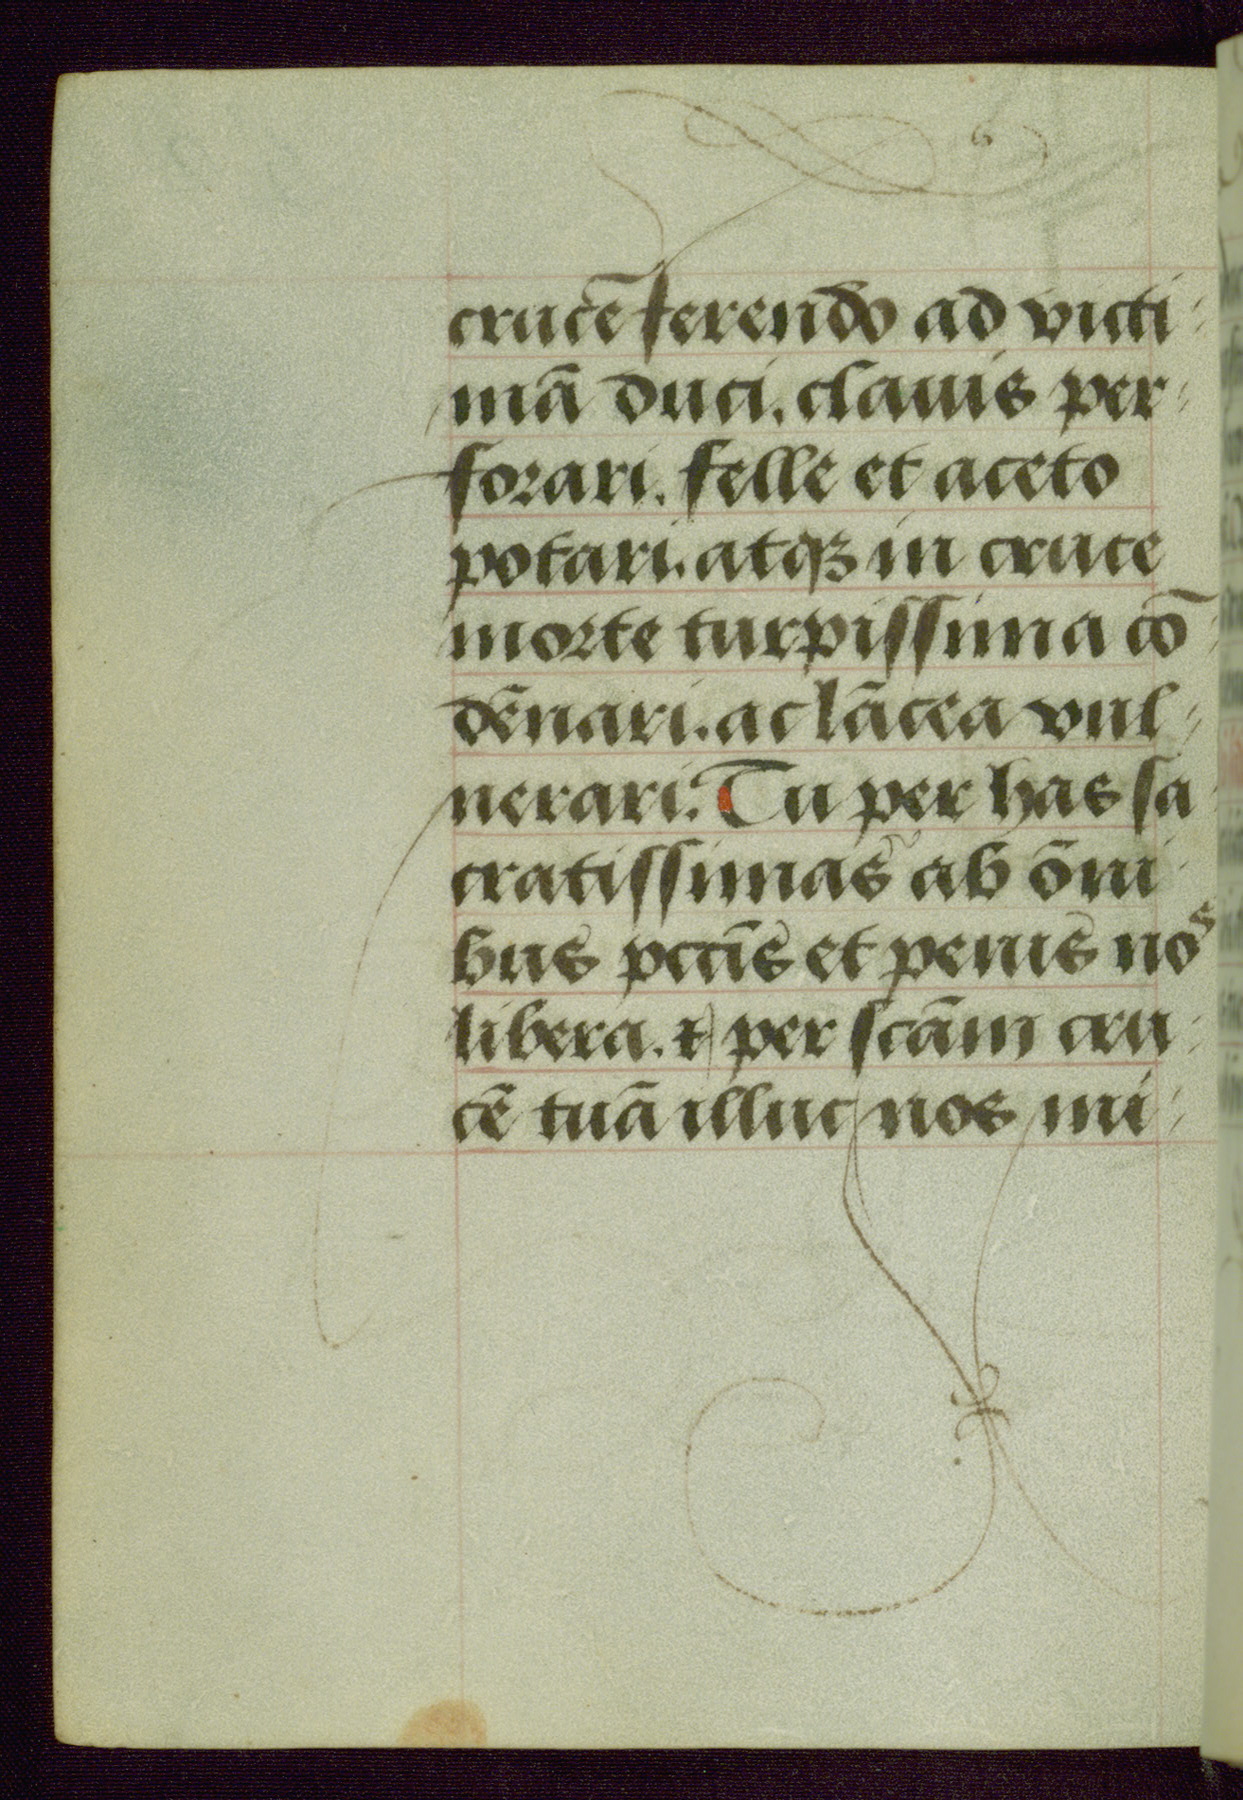 crucē ferendo ad victi⸗
mā duci. clauis per⸗
forari. felle et aceto
potari. atqꝫ in cruce
morte turpissima cō⸗
dēnari. ac lācea vul⸗
nerari. Tu per has sa⸗
cratissimas ab ōni⸗
bus pctīs et penis nos
libera. ⁊ per scām cru⸗
cē tuā illuc nos mi⸗